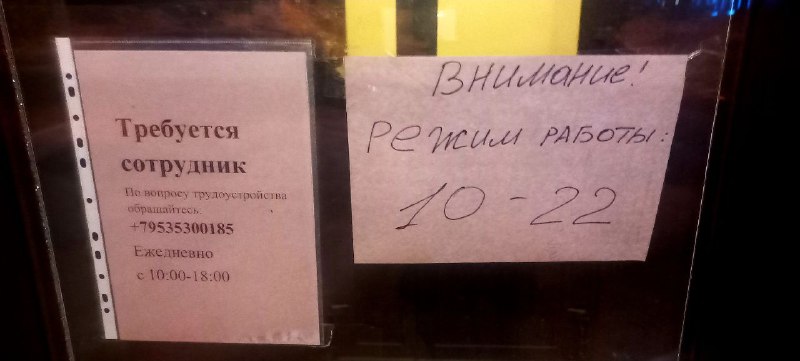 Требуется
сотрудник
По вопросу трудоустройства
обращайтесь
+79535300185
Ежедневно
с 10:00-18:00
Внимание!
Режим работы:
10-22